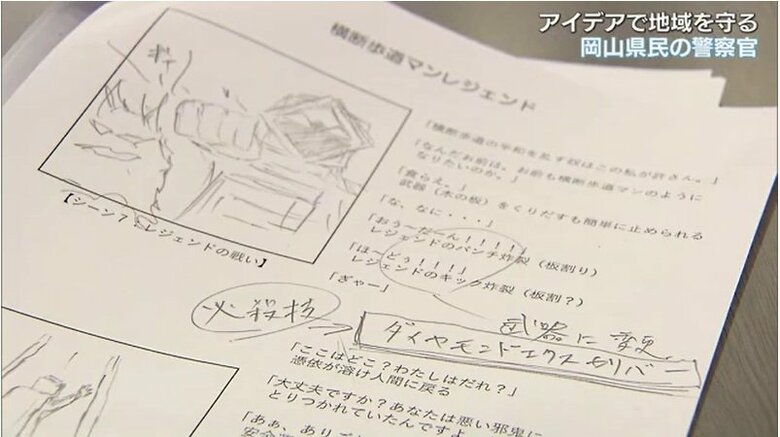 アイデアで地域を守る
岡山県民の警察官
横断歩道マンレジェンド
「横断歩道の平和を乱す奴はこの私が許さん。」
「なんだお前は。お前も横断歩道マンのように
なりたいのか。」
「食らえ。」
武器（木の板）をくりだすも簡単に止められる
「な、なに・・・」
「おう～だーん！！！！」
レジェンドのパンチ炸裂（板割り）
「ほ～どう！！！」
レジェンドのキック炸裂（板割？）
「ぎゃー」
【シーン７：レジェンドの戦い】
必殺技
武器に変更
ダイヤモンドエクスカリバー
「ここはどこ？わたしはだれ？」
憑依が溶け人間に戻る
「大丈夫ですか？あなたは悪い邪鬼に
とりつかれていたんですよ
「ああ、ありご
安全